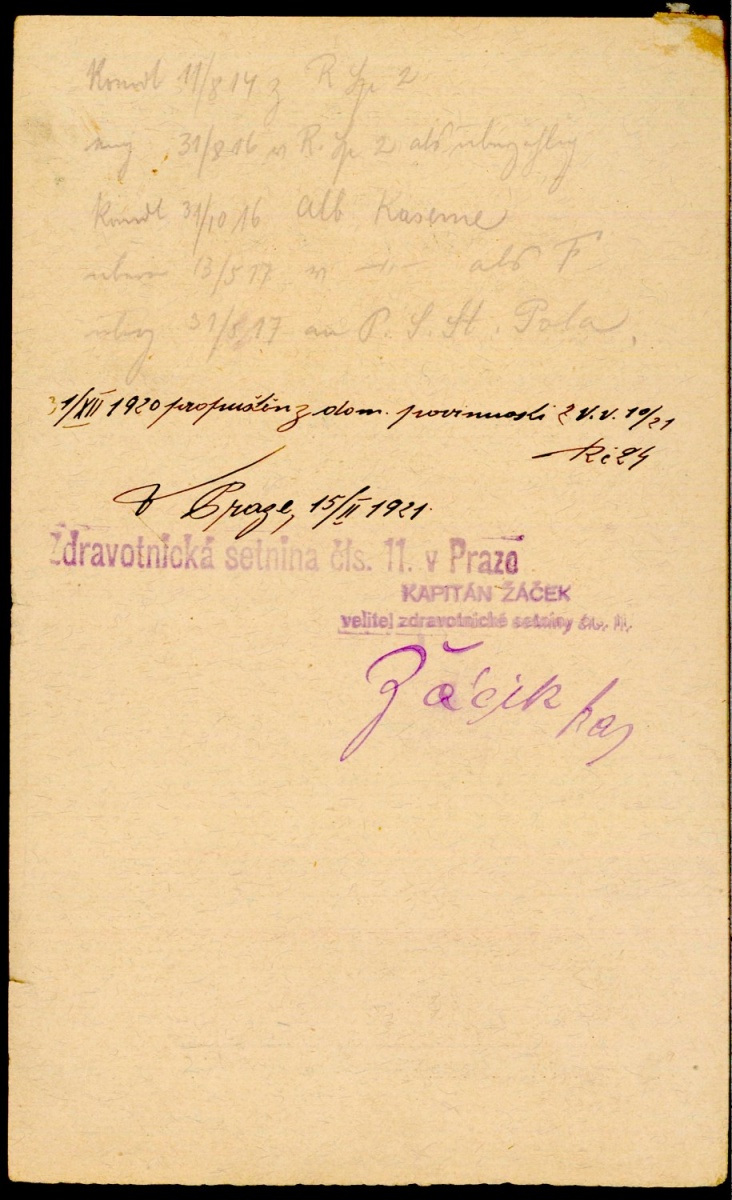 Komdt 11/8 14 z R Sp 2
31/8 16 v R. Sp 2 als
Komdt 31/10 16 Alb Kaserne
13/5 17 v —"— als F
31/5 17 an P. S. St. Pola.
31/XII 1920 propuštěn z dom. povinnosti z v. v. 10/21
V Praze, 15/II 1921.
Zdravotnická setnina čís. 11. v Praze
KAPITÁN ŽÁČEK
velitel zdravotnické setniny čís. 11.
Žáček kap